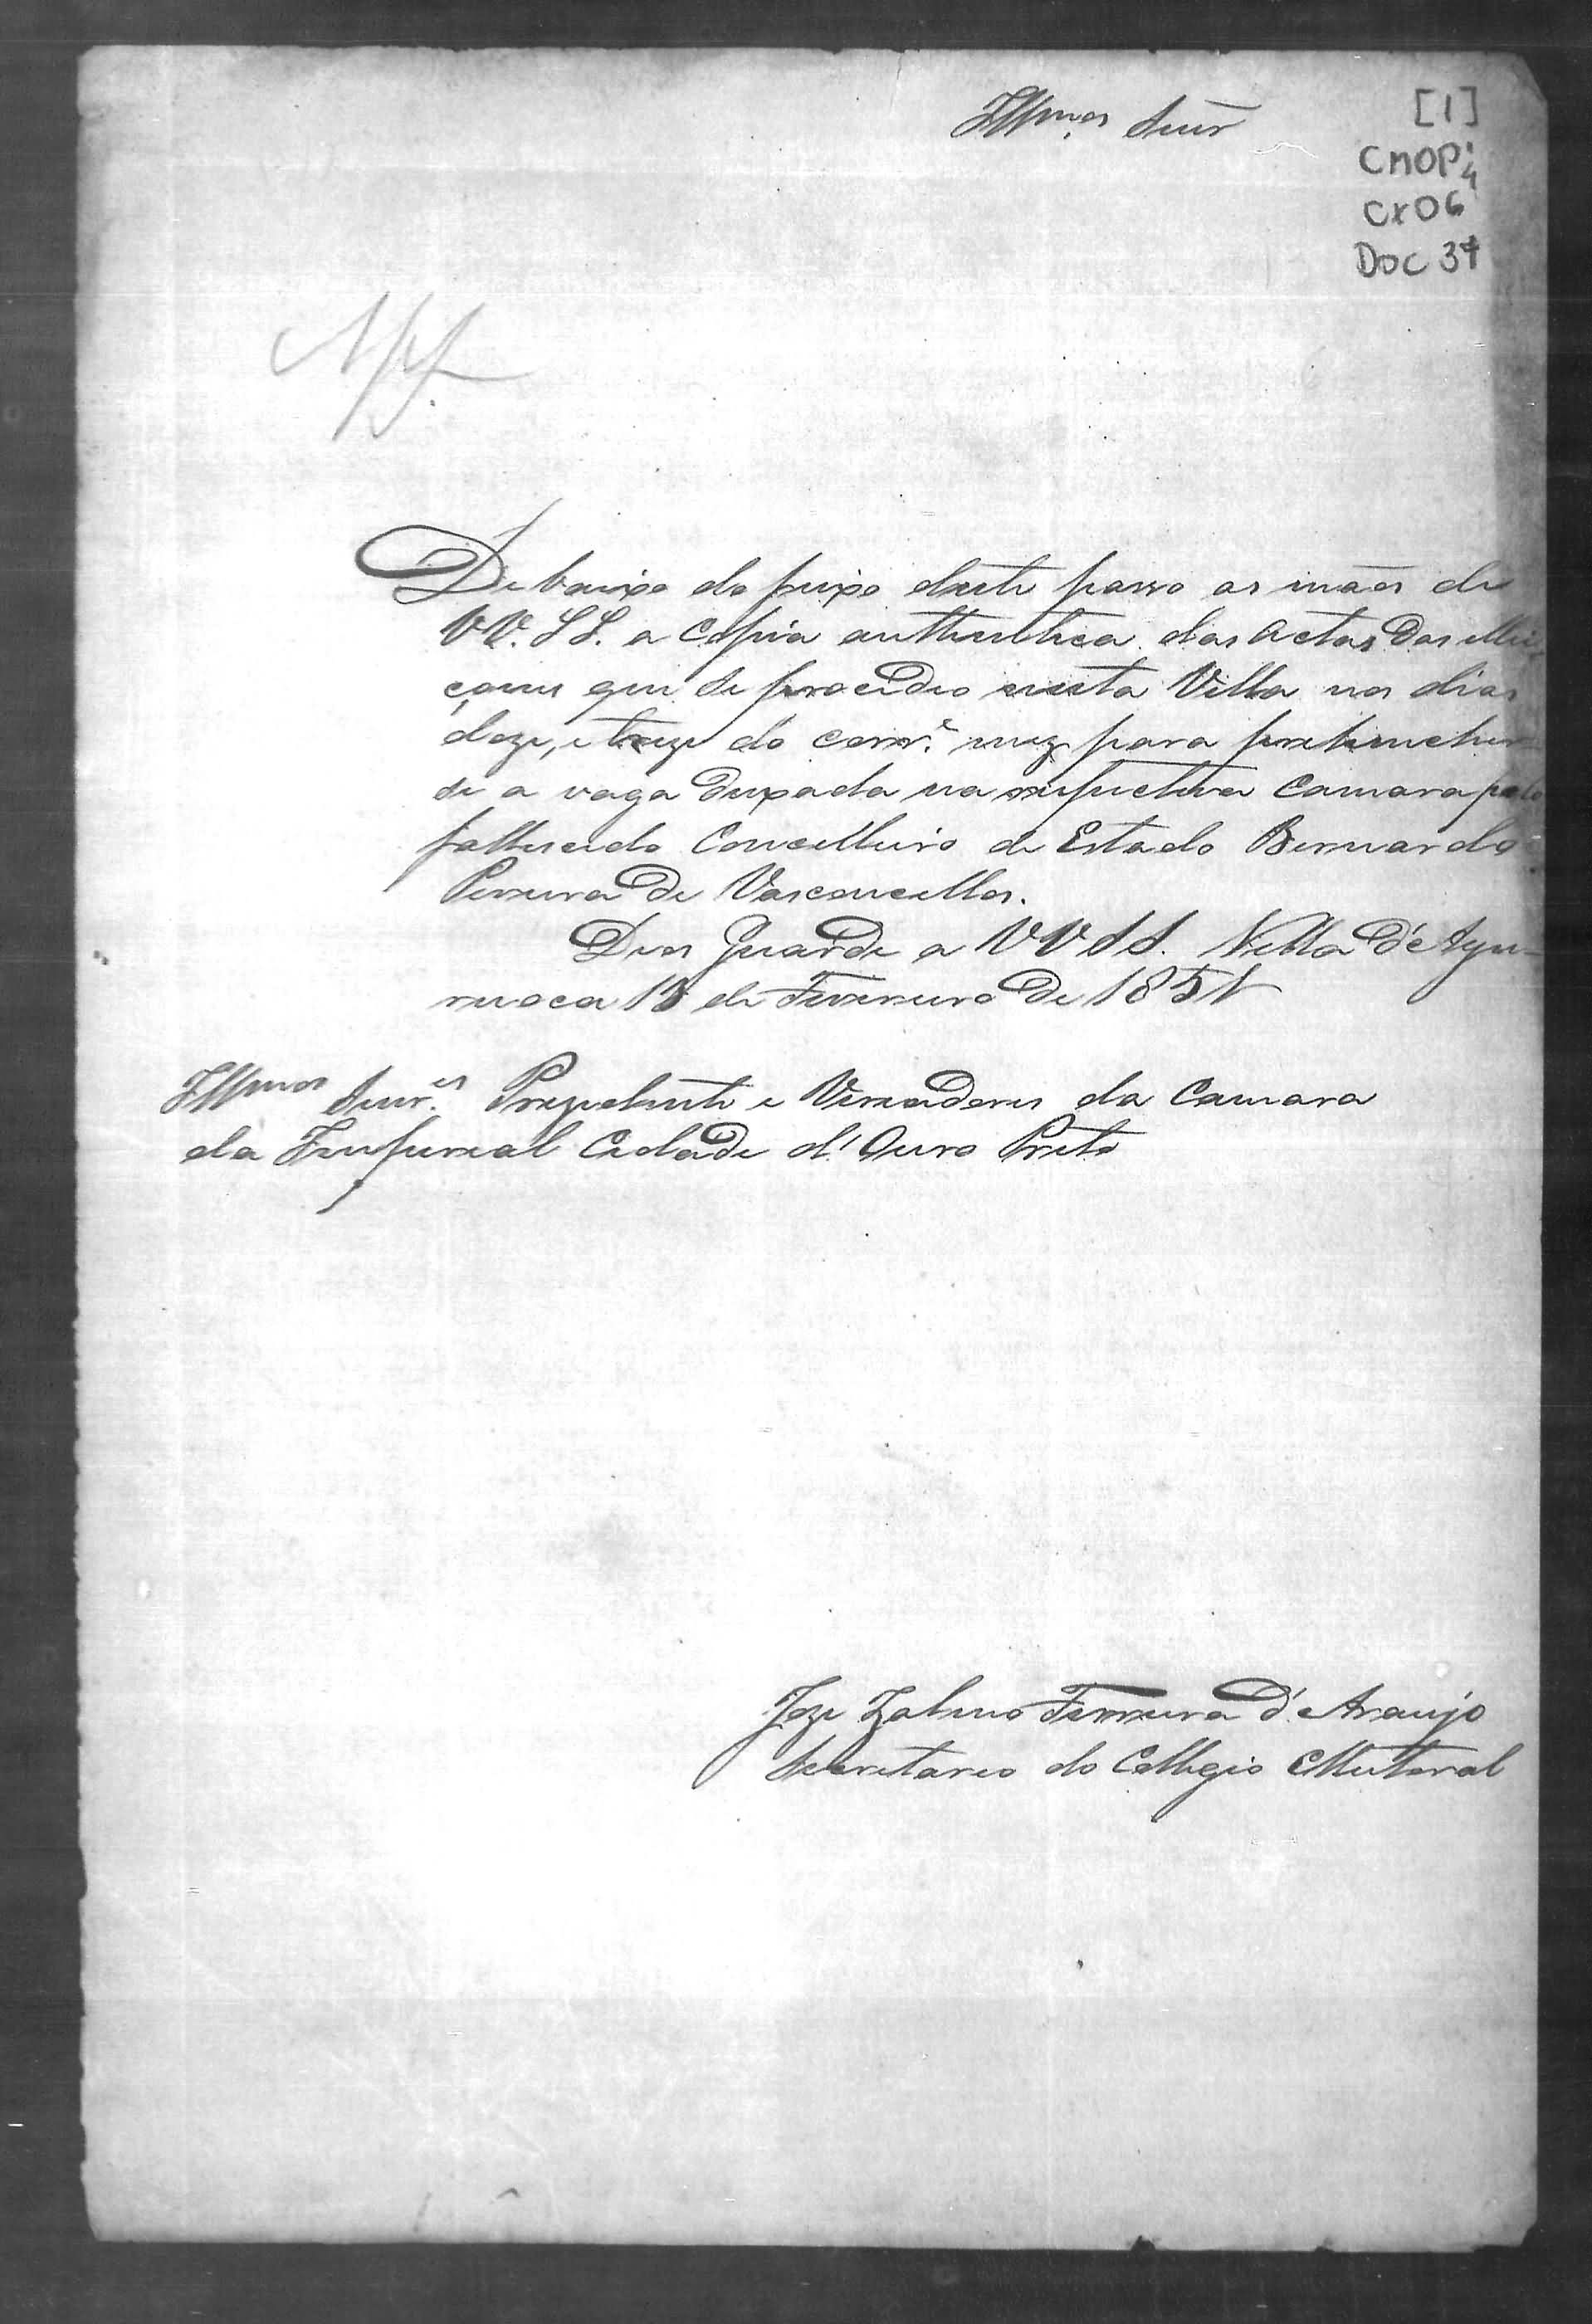 Illmos Snr
[1]
CMOP
Cx 06
Doc 37
Debaixo do fexo deste passo as mãos de
VV. SS. a Copia authentica das Actas das Elei-
çoens que se procedeo nesta Villa nos dias
doze, e treze do corre. mez para prehencher
se a vaga dexada na respectiva Camara pelo
fallecido Concelheiro de Estado Bernardo
Pereira de Vasconcellos.
Deos Guarde a VV SS. Villa d'Ayu-
ruoca 13 de Fevereiro de 1851
Illmos Snres. Prezidente e Vereadores da Camara
da Imperial Cidade d'Ouro Preto
Joze Ferreira d'Araujo
Secretario do Collegio Eleitoral